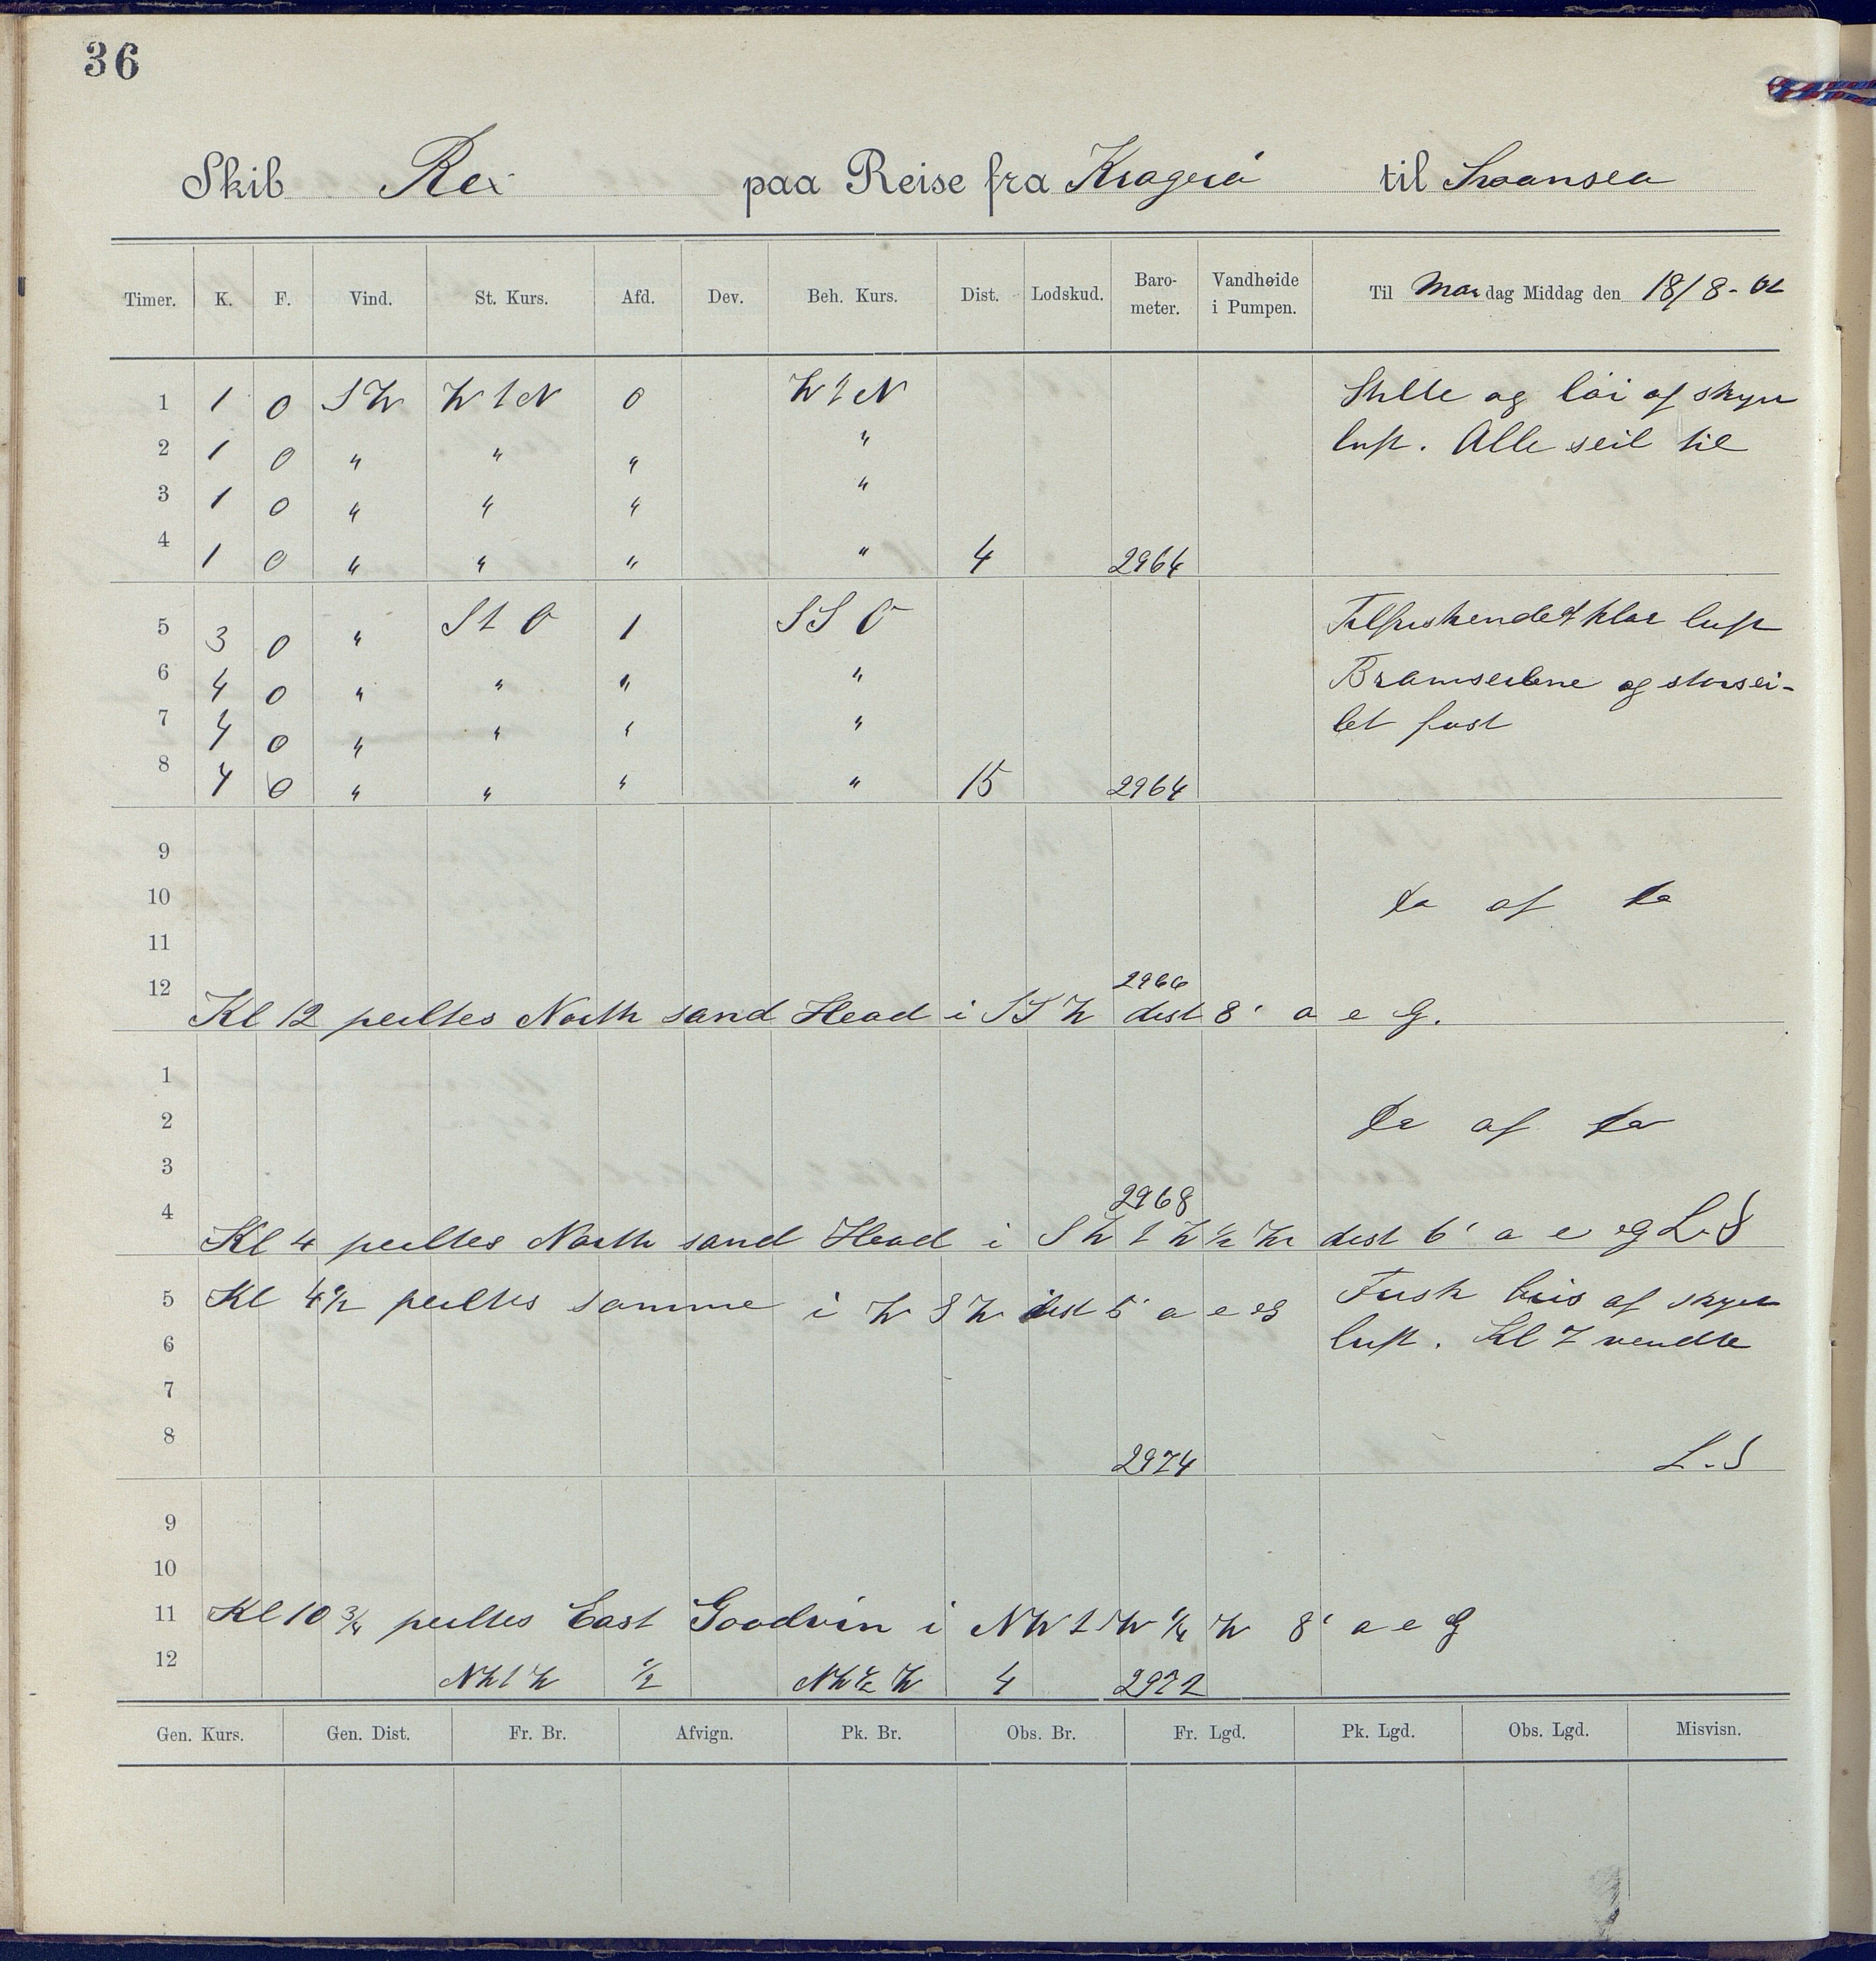 36
Skib Rex paa Reise fra Kragerø til Swansea
Timer. K. F. Vind. St. Kurs. Afd. Dev. Beh. Kurs. Dist. Lodskud. Baro-meter. Vandhøide i Pumpen. Til Mandag Middag den 18/8-02
1 1 0 SW W t N 0 W t N Stille og løi af skyet
2 1 0 " " " " luft. Alle seil til
3 1 0 " " " "
4 1 0 " " " " 4 2964
5 3 0 " S t O 1 SSO Tilfriskende klar luft
6 4 0 " " " " Bramseilene og storsei-
7 4 0 " " " " let fast
8 4 0 " " " " 15 2964
9
10 Da af Da
11
12 2966
Kl 12 peiltes North sand Head i SSW dist 8' a e G.
1
2 Da af Da
3
4 2968
Kl 4 peiltes North sand Head i SW t W ½ W dist 6' a e G L.S
5 Kl 4½ peiltes samme i WSW dist 5' a e G Frisk bris af skyet
6 luft. Kl 7 vendte
7
8 2974 L.S
9
10
11 Kl 10 ¾ peiltes East Goodvin i NW t W ¼ W 8' a e G
12 NW t W ½ NW ½ W 4 2972
Gen. Kurs. Gen. Dist. Fr. Br. Afvign. Pk. Br. Obs. Br. Fr. Lgd. Pk. Lgd. Obs. Lgd. Misvisn.